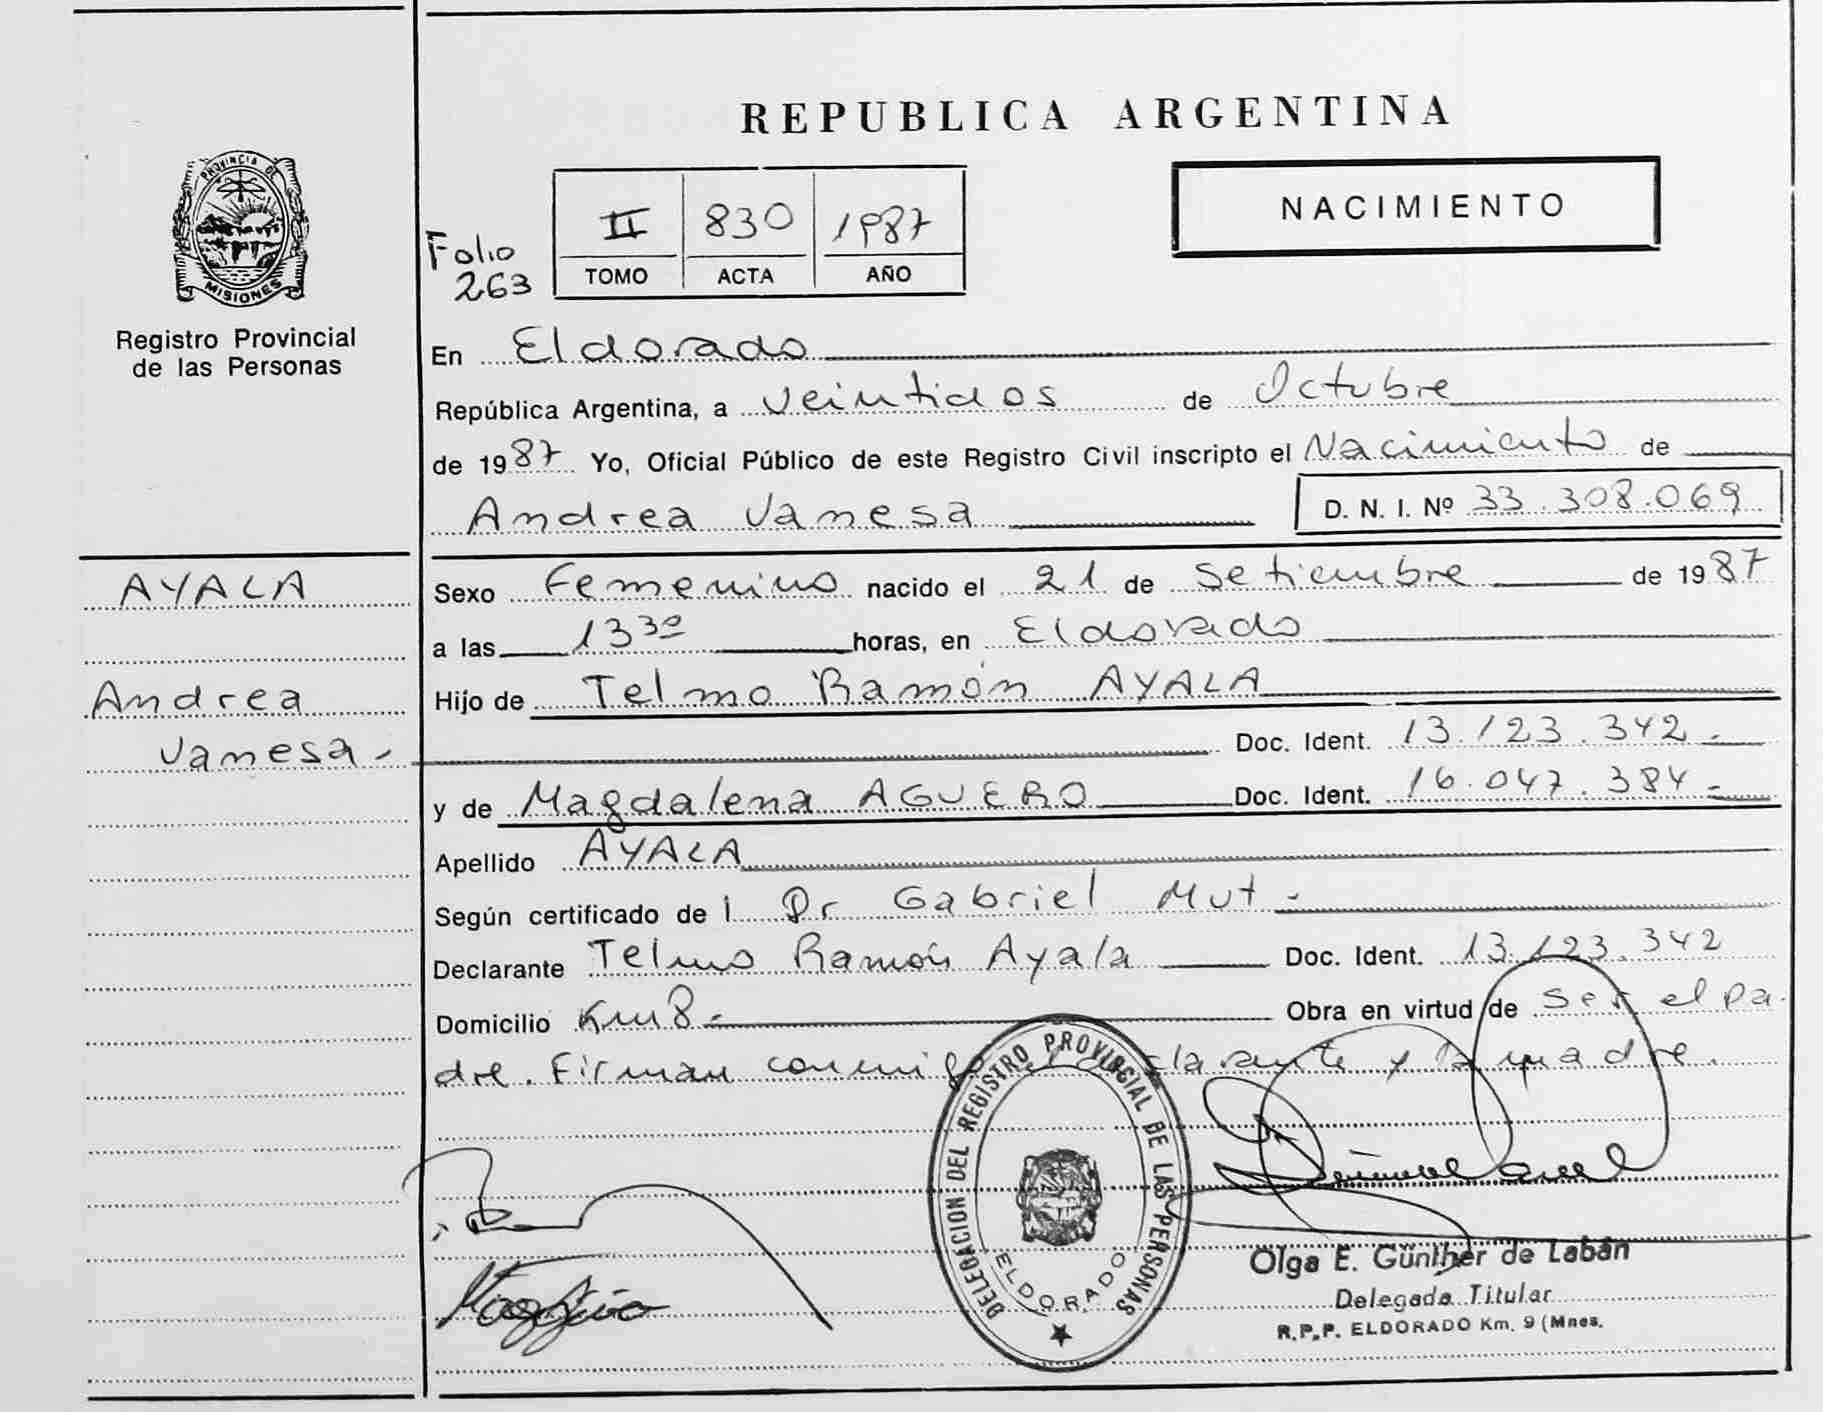 REPUBLICA ARGENTINA
PROVINCIA DE
MISIONES
Registro Provincial
de las Personas
Folio
263
II 830 1987
TOMO ACTA AÑO
NACIMIENTO
En Eldorado
República Argentina, a veintidos de Octubre
de 1987 Yo, Oficial Público de este Registro Civil inscripto el Nacimiento de
Andrea Vanesa D. N. I. Nº 33.308.069
AYALA
Andrea
Vanesa -
Sexo Femenino nacido el 21 de Setiembre de 1987
a las 13 30 horas, en Eldorado
Hijo de Telmo Ramón AYALA
Doc. Ident. 13.123.342.-
y de Magdalena AGUERO Doc. Ident. 16.047.384.-
Apellido AYALA
Según certificado de l Dr Gabriel Mut -
Declarante Telmo Ramón Ayala Doc. Ident. 13.123.342
Domicilio Km 8.- Obra en virtud de ser el pa-
dre. Firman conmigo el declarante y la madre.
DELEGACION DEL REGISTRO PROVINCIAL DE LAS PERSONAS
ELDORADO
Olga E. Günther de Labán
Delegada Titular
R.P.P. ELDORADO Km. 9 (Mnes.